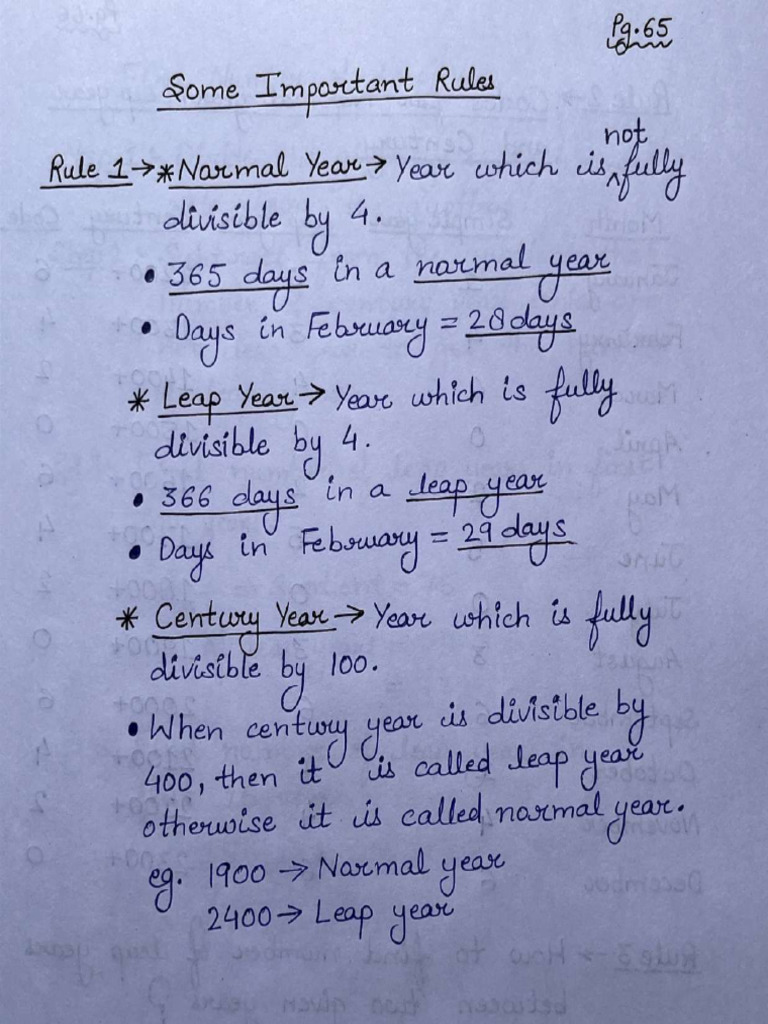 Pg.65
Some Important Rules
Rule 1→*Normal Year→ Year which is not fully
divisible by 4.
• 365 days in a normal year
• Days in February = 28 days
* Leap Year→ Year which is fully
divisible by 4.
• 366 days in a leap year
• Days in February = 29 days
* Century Year→ Year which is fully
divisible by 100.
• When century year is divisible by
400, then it is called leap year
otherwise it is called normal year.
eg. 1900 → Normal year
2400→ Leap year